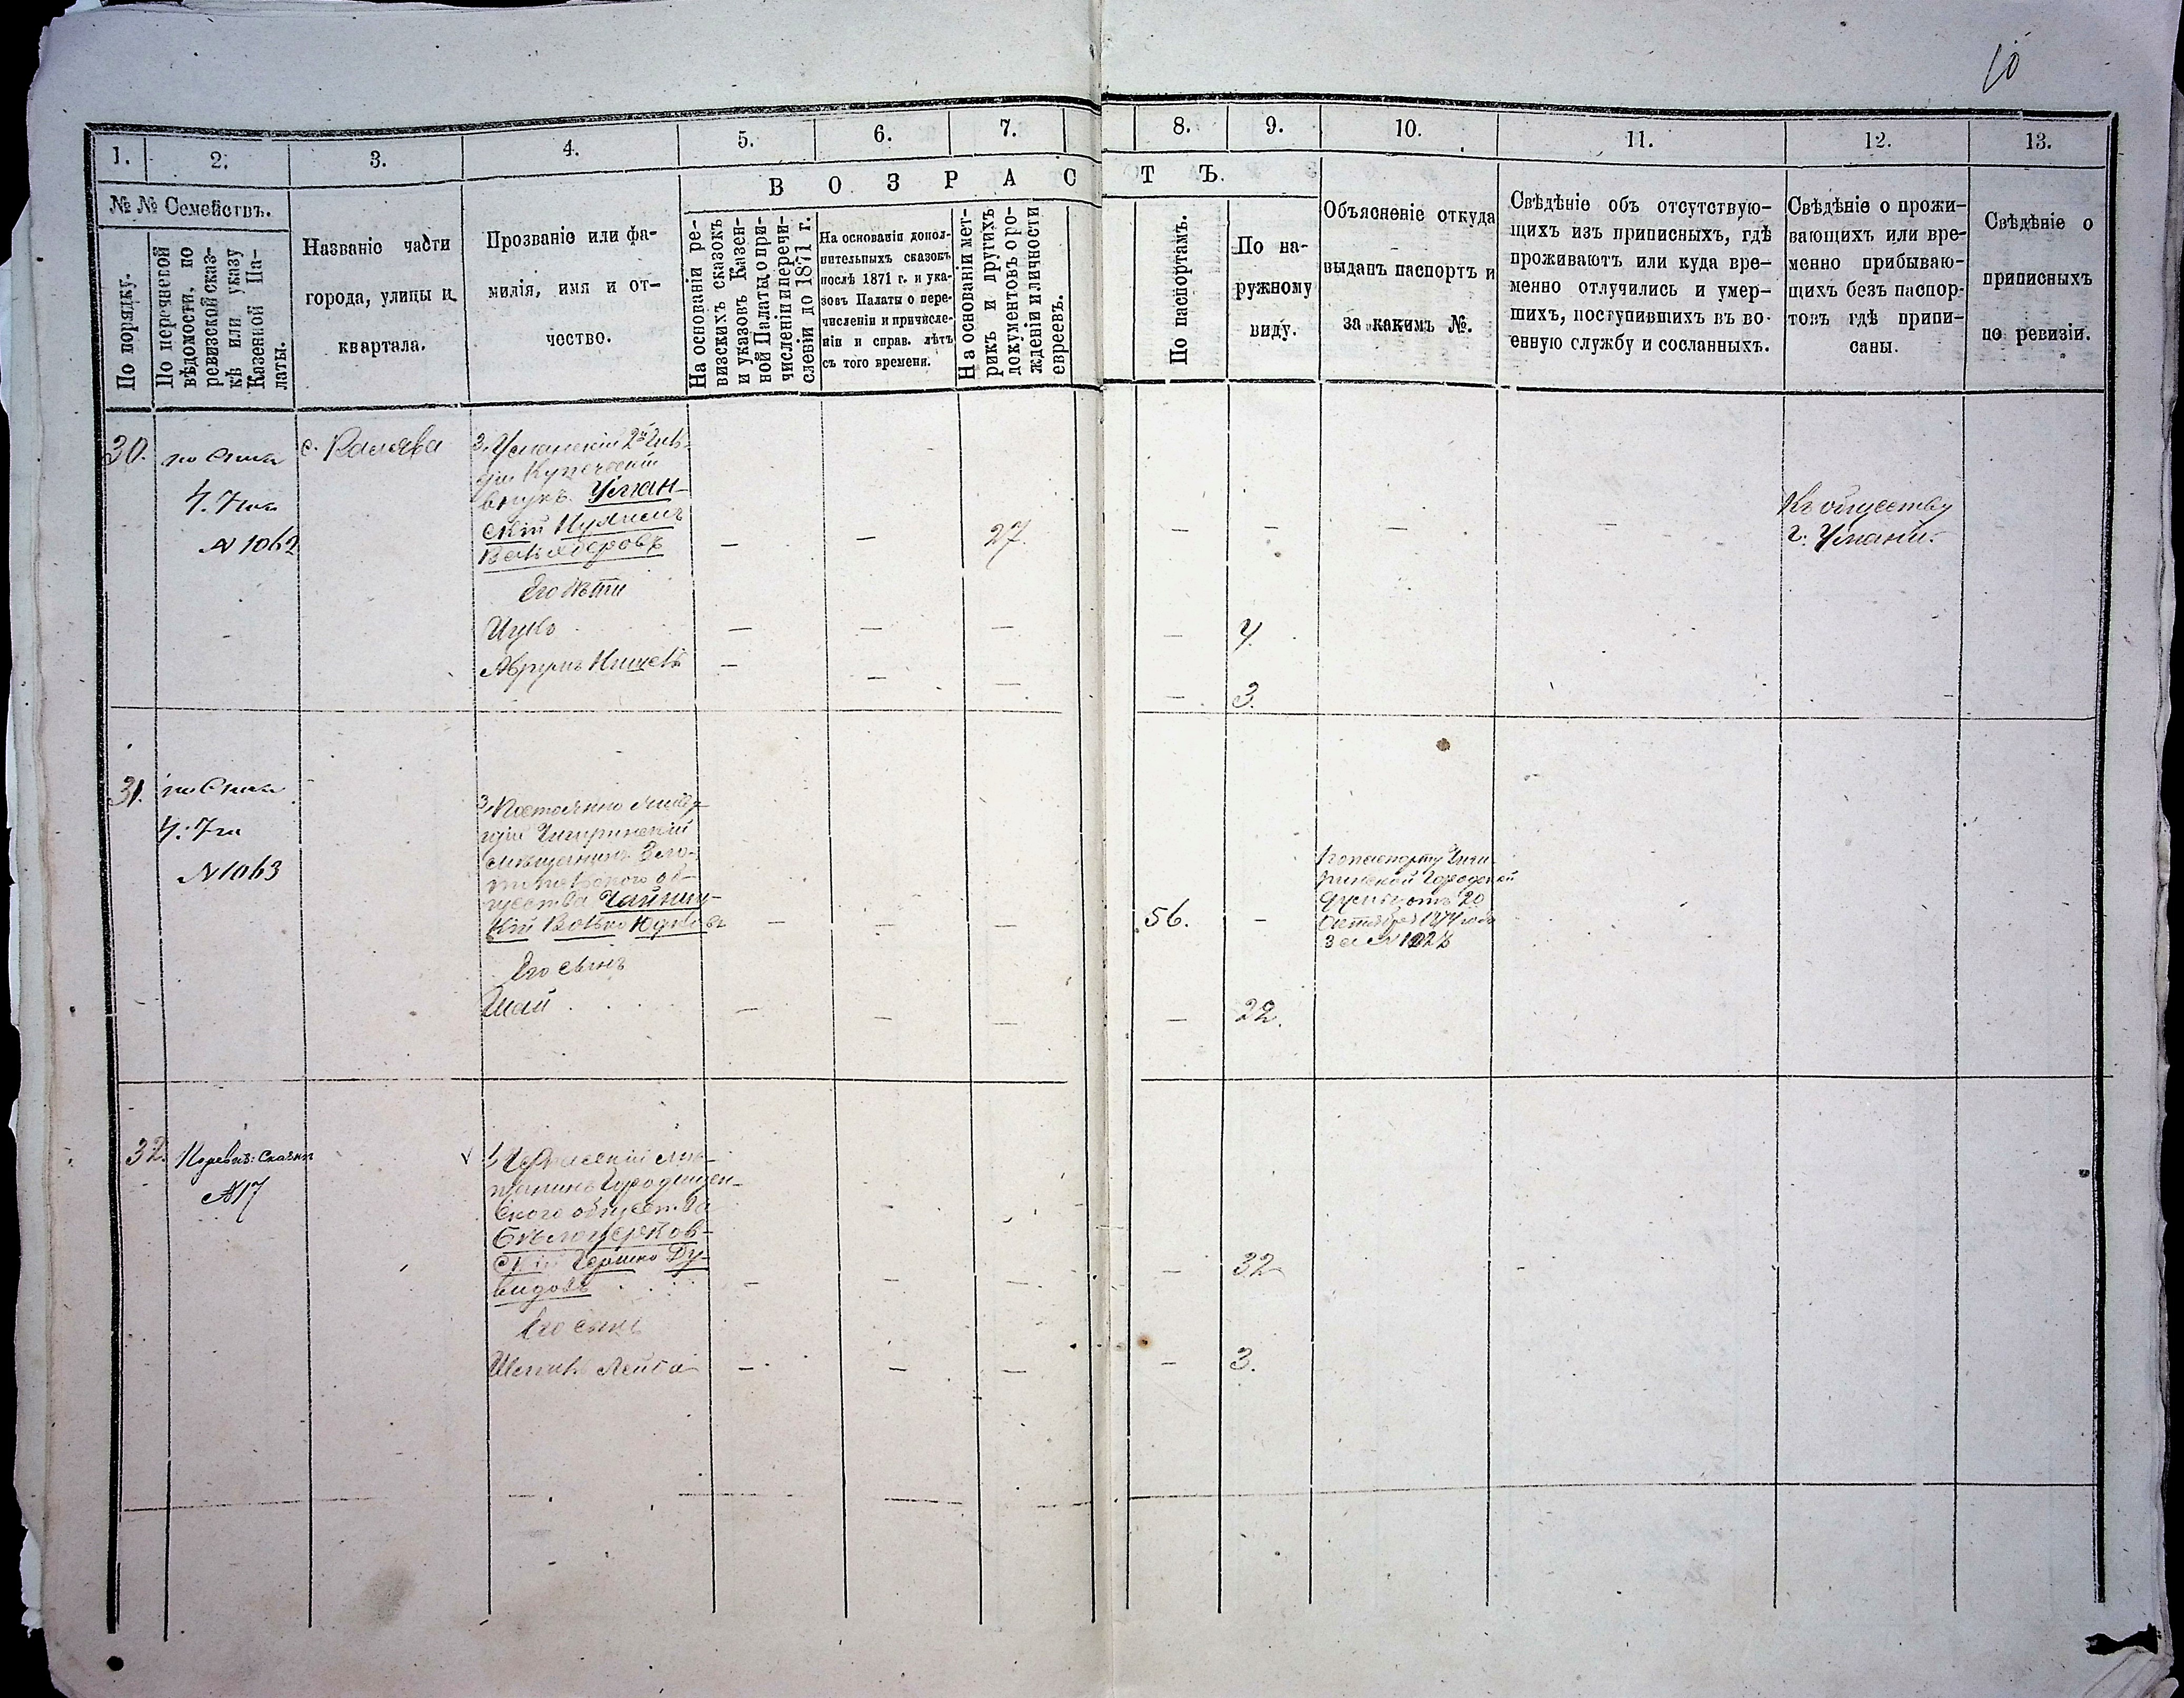 10
1. 2. 3. 4. 5. 6. 7. 8. 9. 10. 11. 12. 13.
№ № Семействъ.
По порядку.
По перечневой
вѣдомости, по
ревизской сказ-
кѣ или указу
Казенной Па-
латы.
Названіе части
города, улицы и
квартала.
Прозваніе или фа-
милія, имя и от-
чество.
ВОЗРАСТЪ.
На основаніи ре-
визскихъ сказокъ
и указовъ Казен-
ной Палаты о при-
численіи и перечи-
слении до 1871 г.
На основаніи допол-
нительныхъ сказокъ
послѣ 1871 г. и ука-
зовъ Палаты о пере-
численіи и причисле-
ніи и справ. лѣтъ
съ того времени.
На основаніи мет-
рикъ и другихъ
документовъ о ро-
жденіи и личности
евреевъ.
По паспортамъ.
По на-
ружному
виду.
Объясненіе откуда
выданъ паспортъ и
за какимъ №.
Свѣдѣніе объ отсутствую-
щихъ изъ приписныхъ, гдѣ
проживаютъ или куда вре-
менно отлучились и умер-
шихъ, поступившихъ въ во-
енную службу и сосланныхъ.
Свѣдѣніе о прожи-
вающихъ или вре-
менно прибываю-
щихъ безъ паспор-
товъ гдѣ припи-
саны.
Свѣдѣніе о
приписныхъ
по ревизіи.
30.
Ч. 7
№ 1062
с.
3, Уманскій 2й Гиль-
діи Купеческій
внукъ Уман-
скій
Его дѣти
Ицко
Аврумъ
27.
4.
3.
Къ обществу
г. Умани.
31.
Ч. 7
№ 1063
3, Постоянно
Чигиринскій
мѣщанинъ Зла-
топольскаго об-
щества
Волько Юдковъ
Его сынъ
Шай
56.
22.
по паспорту Чиги-
ринской Городской
Думы отъ 20
Октября 1874 года
за №
32.
По ревиз: сказкѣ
№ 17
1, Черкаскій мѣ-
щанинъ Городищен-
скаго общества
Бѣлоцерков-
скій Гершко Ду-
видовъ
Его сынъ
Лейба
32
3.